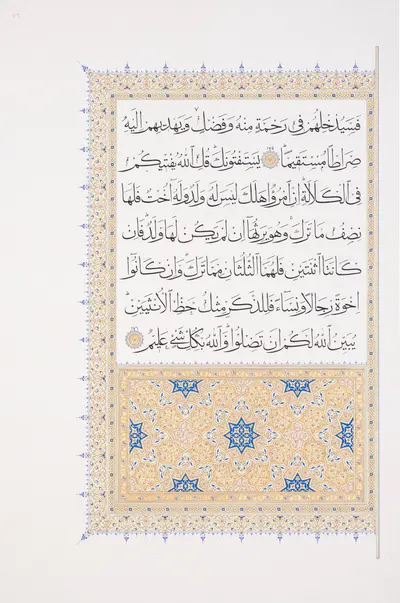 فَسَيُدْخِلُهُمْ فِى رَحْمَةٍ مِنْهُ وَفَضْلٍ وَيَهْدِيهِمْ إِلَيْهِ
صِرَاطًا مُسْتَقِيمًا يَسْتَفْتُونَكَ قُلِ ٱللَّهُ يُفْتِيكُمْ
فِى ٱلْكَلَالَةِ إِنِ ٱمْرُؤٌا هَلَكَ لَيْسَ لَهُ وَلَدٌ وَلَهُ أُخْتٌ فَلَهَا
نِصْفُ مَا تَرَكَ وَهُوَ يَرِثُهَا إِنْ لَمْ يَكُنْ لَهَا وَلَدٌ فَإِنْ
كَانَتَا ٱثْنَتَيْنِ فَلَهُمَا ٱلثُّلُثَانِ مِمَّا تَرَكَ وَإِنْ كَانُوا
إِخْوَةً رِجَالًا وَنِسَاءً فَلِلذَّكَرِ مِثْلُ حَظِّ ٱلْأُنْثَيَيْنِ
يُبَيِّنُ ٱللَّهُ لَكُمْ أَنْ تَضِلُّوا وَٱللَّهُ بِكُلِّ شَىْءٍ عَلِيمٌ